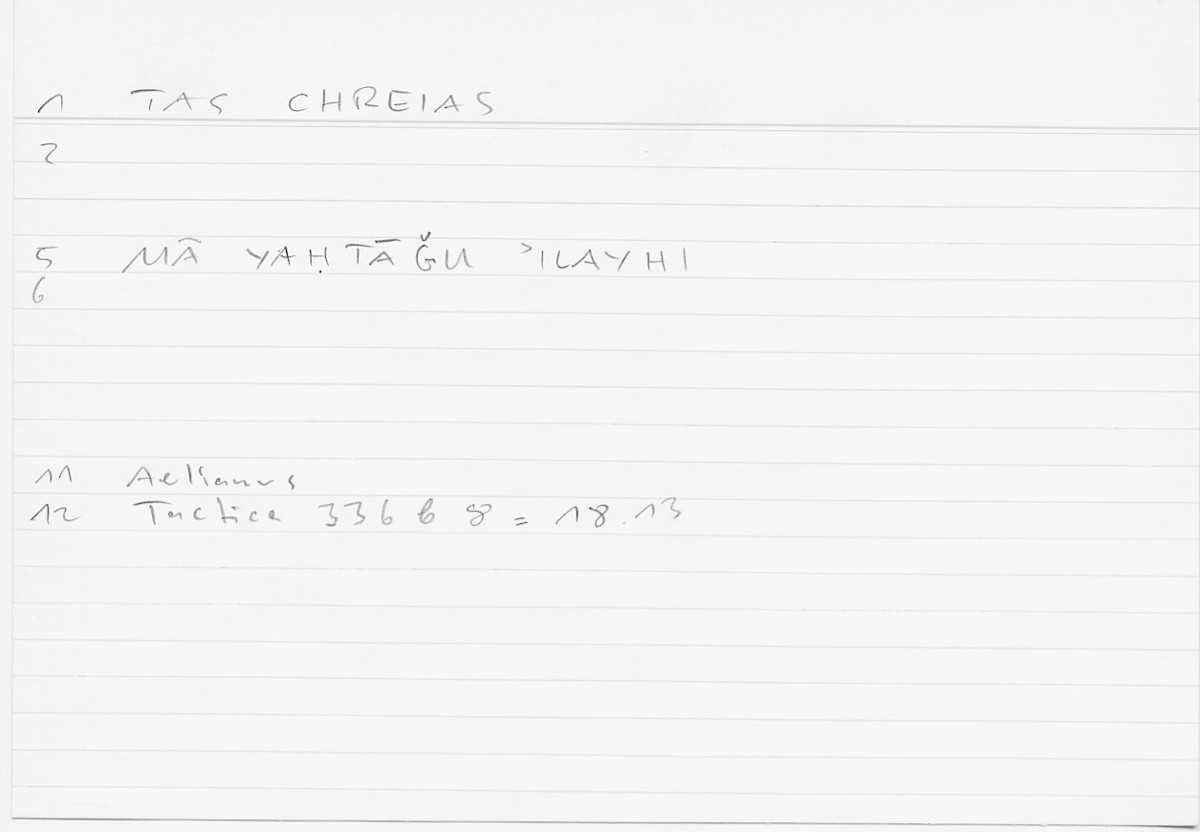 1 TAS CHREIAS
2
5 MĀ YAḤTĀǦU ʾILAYHI
6
11 Aelianus
12 Tactica 336 b 8 = 18.13